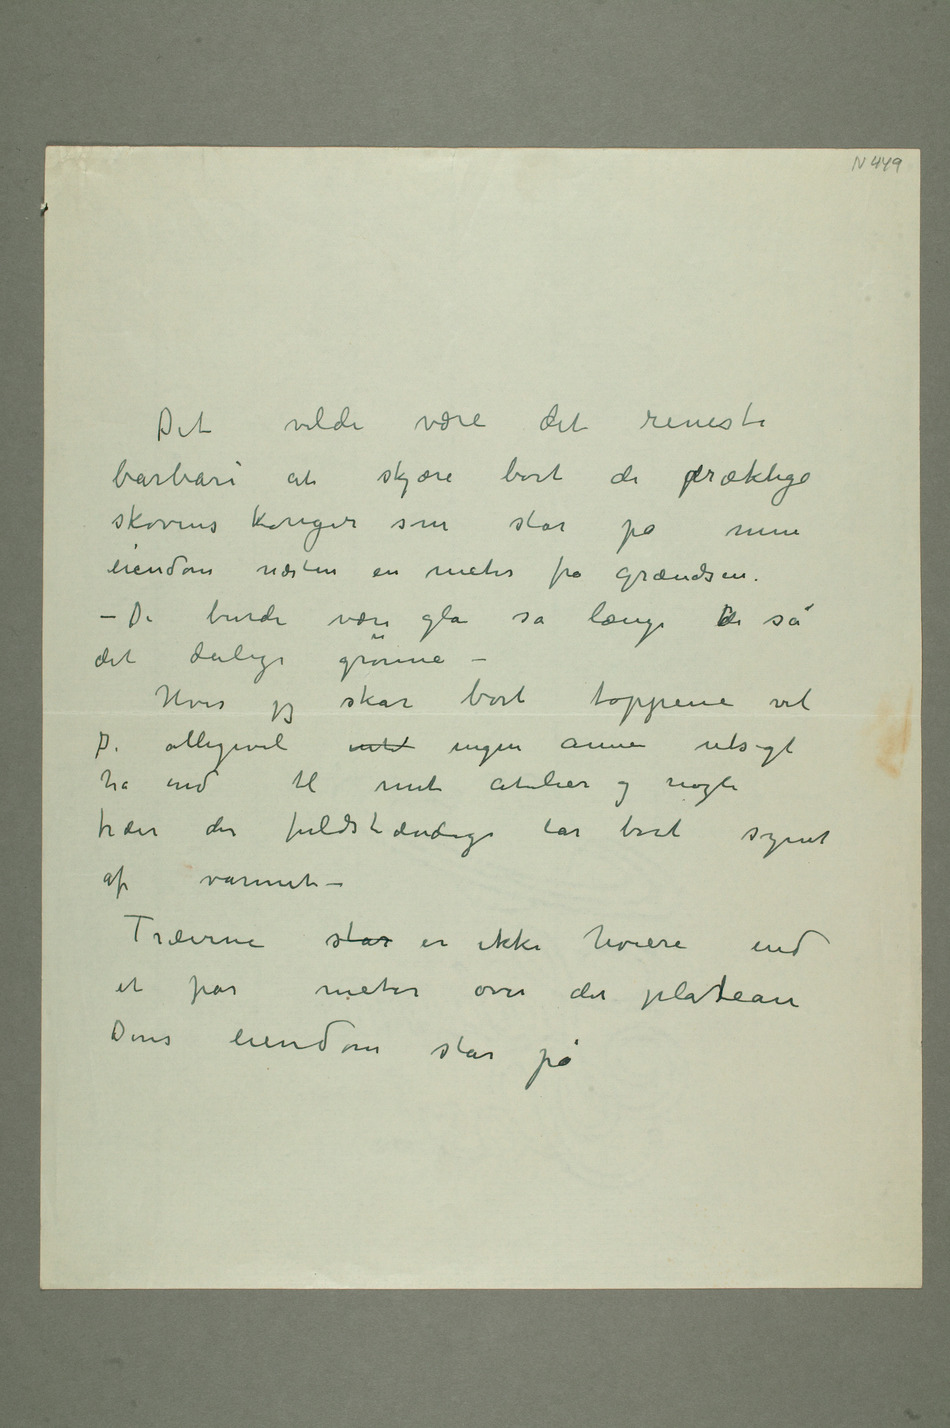 N 449
Det vilde være det reneste
barbari at skjære bort de præktige
skovens konger som står på min
eiendom næsten en meter fra grændsen.
– De burde være gla så længe De så
det deilige grønne –
Hvis jeg skar bort toppene vil
De alligevel intet ingen annen utsigt
ha end til mit atelier og nogle
træer der fuldstændige tar bort synet
af vannet –
Træerne står er ikke høiere end
et par meter over det plateau
Deres eiendom står på